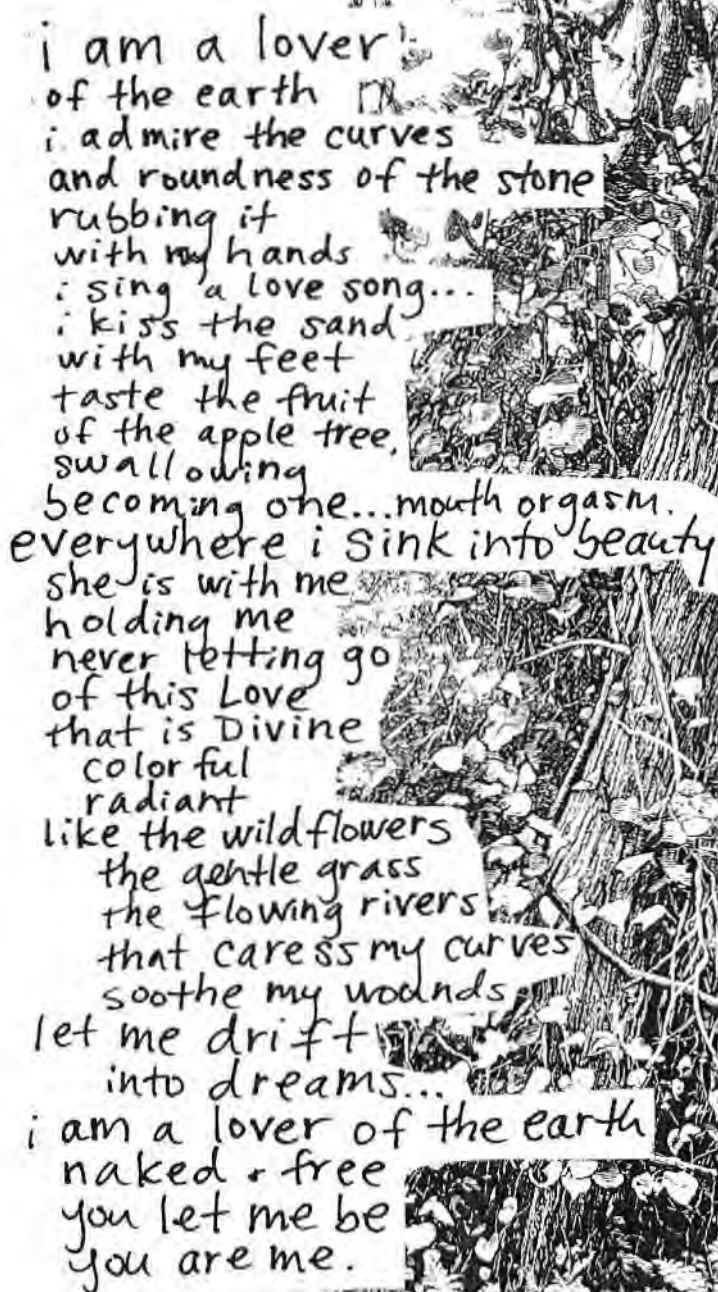 i am a lover
of the earth
i admire the curves
and roundness of the stone
rubbing it
with my hands
i sing a love song...
i kiss the sand
with my feet
taste the fruit
of the apple tree,
swallowing
becoming one...mouth orgasm.
everywhere i sink into beauty
she is with me
holding me
never letting go
of this Love
that is Divine
colorful
radiant
like the wildflowers
the gentle grass
the flowing rivers
that caress my curves
soothe my wounds
let me drift
into dreams...
i am a lover of the earth
naked + free
you let me be
you are me.